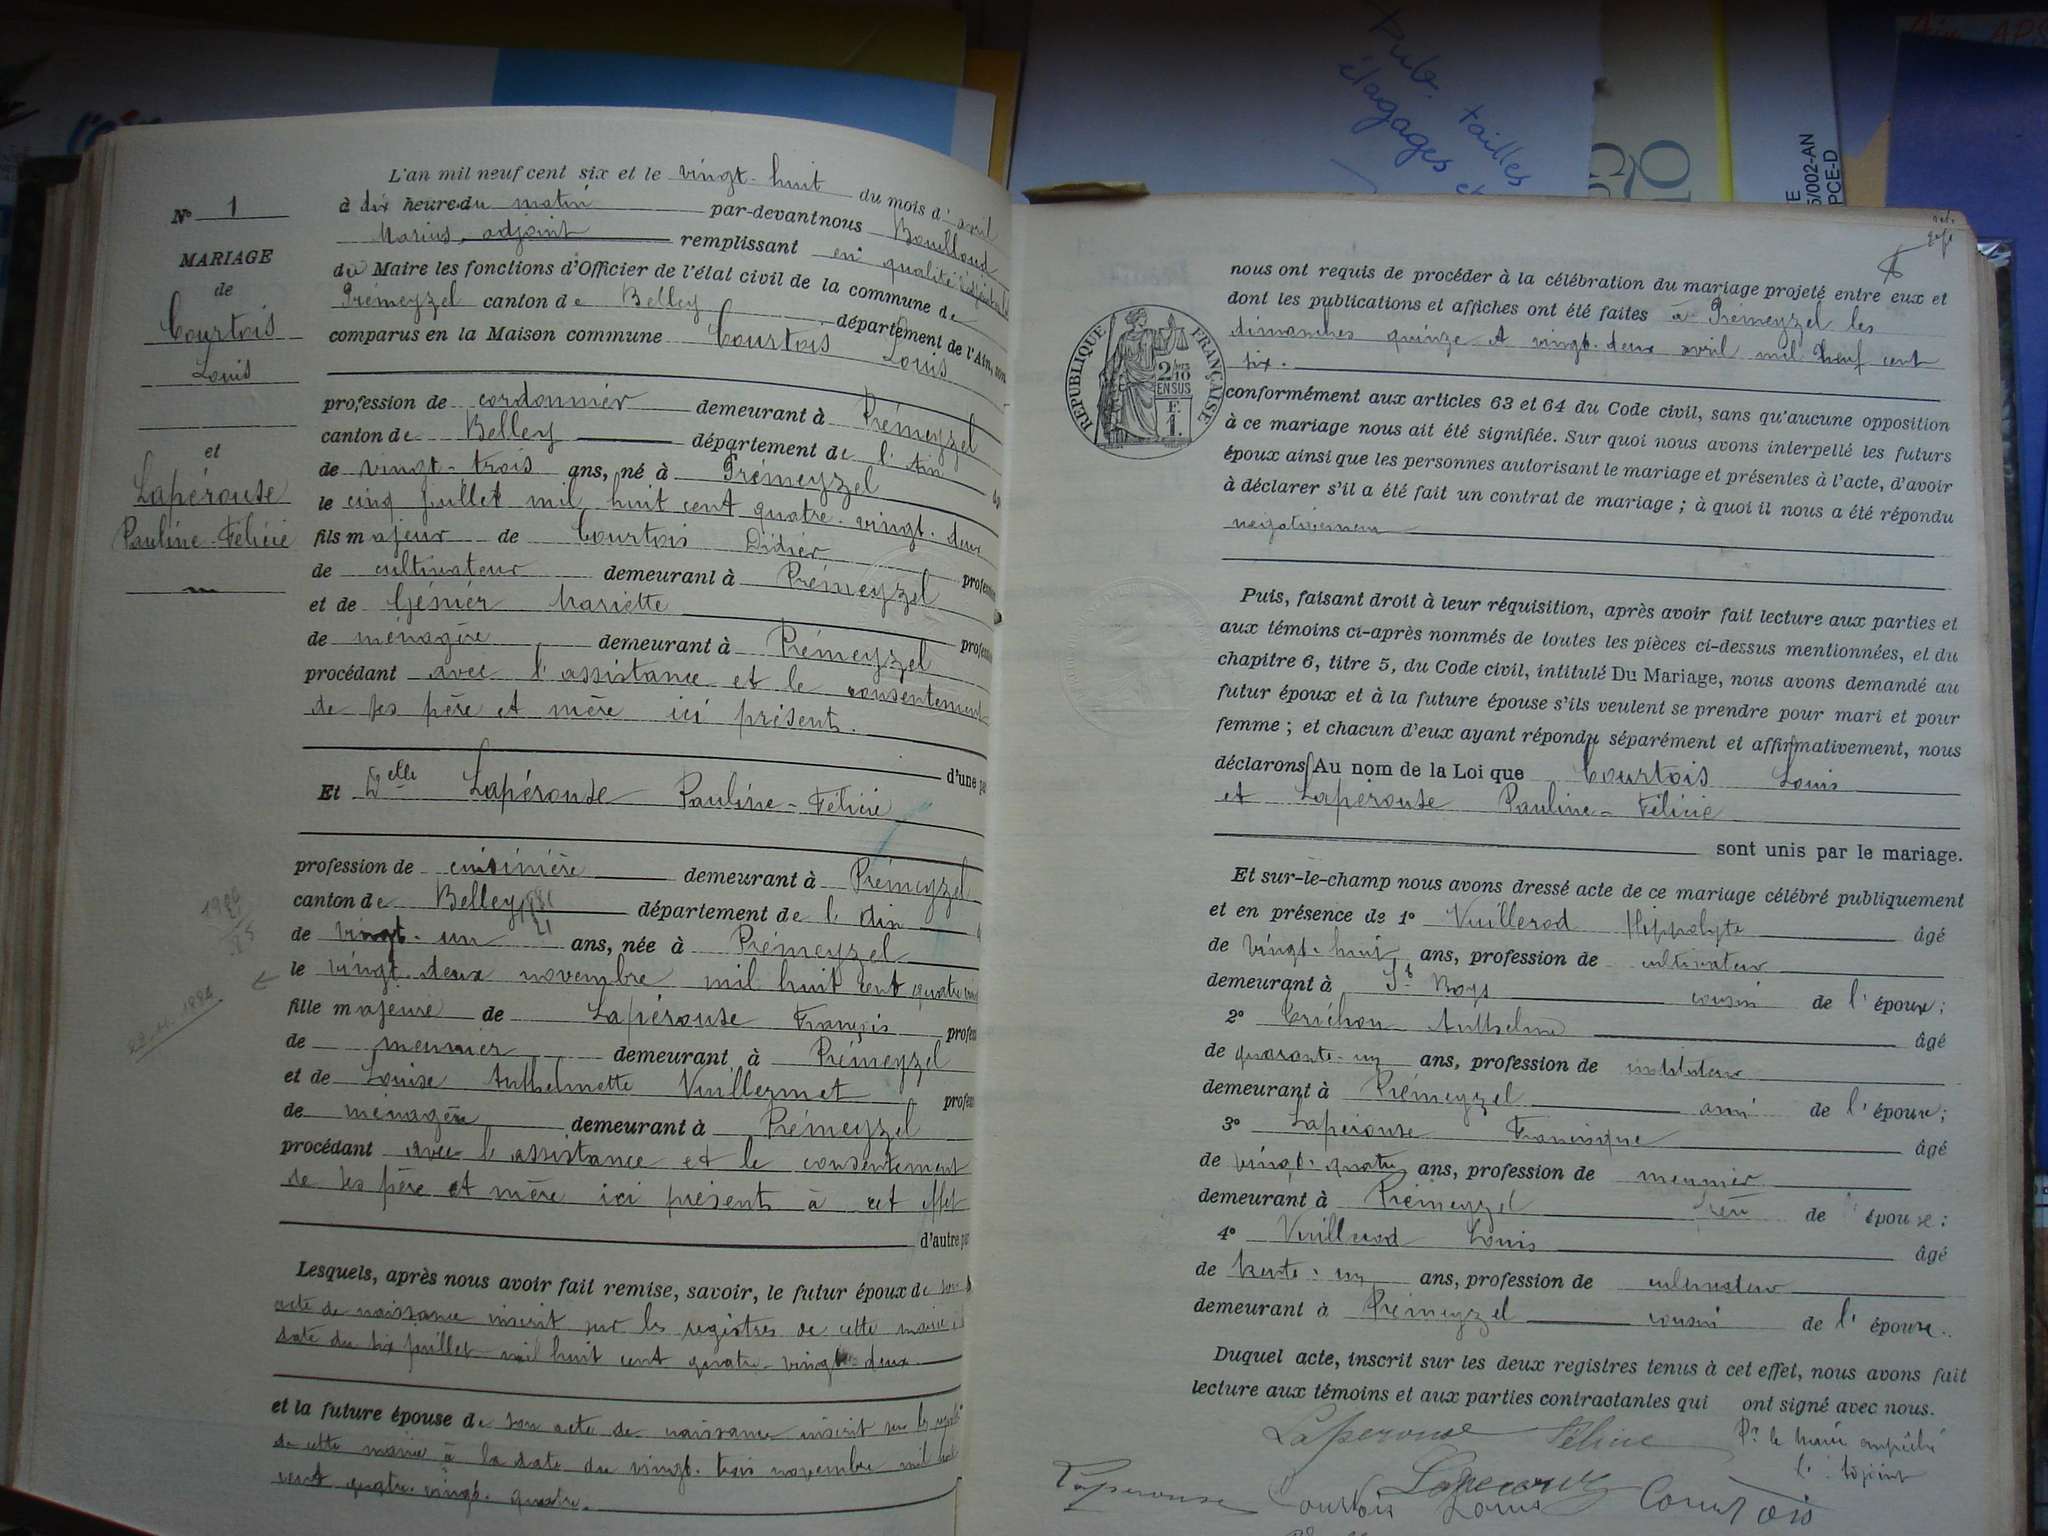 Pub. tailles
élagages et
5/002-AN
PCE-D
N° 1
MARIAGE
de
Courtois
Louis
et
Lapérouse
Pauline-Félicie
L'an mil neuf cent six et le vingt-huit du mois d'avril
à dix heure du matin par-devant nous Bouilloud
Marius, adjoint remplissant en qualité d'adjoint
du Maire les fonctions d'Officier de l'état civil de la commune de
Prémeyzel canton de Belley département de l'Ain, sont
comparus en la Maison commune Courtois Louis
profession de cordonnier demeurant à Prémeyzel
canton de Belley département de l'Ain
de vingt-trois ans, né à Prémeyzel
le cinq juillet mil huit cent quatre-vingt-deux
fils majeur de Courtois Didier
de cultivateur demeurant à Prémeyzel profession
et de Génier Mariette
de ménagère demeurant à Prémeyzel
procédant avec l'assistance et le consentement
de ses père et mère ici présent.
d'une pa
Et Delle Lapérouse Pauline-Félicie
profession de cuisinière demeurant à Prémeyzel
canton de Belley département de l'Ain
de vingt-un ans, née à Prémeyzel
le vingt-deux novembre mil huit cent quatre vin
fille majeure de Lapérouse François profess
de meunier demeurant à Prémeyzel
et de Louise Anthelmette Vuillermet profes
de ménagère demeurant à Prémeyzel
procédant avec l'assistance et le consentement
de ses père et mère ici présents à cet effet
d'autre par
Lesquels, après nous avoir fait remise, savoir, le futur époux de son
acte de naissance inscrit sur les registres de cette mairie à
date du six juillet mil huit cent quatre-vingt-deux.
et la future épouse de son acte de naissance inscrit sur les
de cette mairie à la date du vingt-trois novembre mil huit
cent quatre-vingt-quatre.
RÉPUBLIQUE FRANÇAISE
2/10
EN SUS
F. 1.
nous ont requis de procéder à la célébration du mariage projeté entre eux et
dont les publications et affiches ont été faites à Prémeyzel les
dimanches quinze et vingt-deux avril mil neuf cent
six.
conformément aux articles 63 et 64 du Code civil, sans qu'aucune opposition
à ce mariage nous ait été signifiée. Sur quoi nous avons interpellé les futurs
époux ainsi que les personnes autorisant le mariage et présentes à l'acte, d'avoir
à déclarer s'il a été fait un contrat de mariage ; à quoi il nous a été répondu
négativement
Puis, faisant droit à leur réquisition, après avoir fait lecture aux parties et
aux témoins ci-après nommés de toutes les pièces ci-dessus mentionnées, et du
chapitre 6, titre 5, du Code civil, intitulé Du Mariage, nous avons demandé au
futur époux et à la future épouse s'ils veulent se prendre pour mari et pour
femme ; et chacun d'eux ayant répondu séparément et affirmativement, nous
déclarons Au nom de la Loi que Courtois Louis
et Lapérouse Pauline-Félicie
sont unis par le mariage.
Et sur-le-champ nous avons dressé acte de ce mariage célébré publiquement
et en présence de 1° Vuillerod Hippolyte âgé
de vingt-huit ans, profession de cultivateur
demeurant à St Boys cousin de l'époux ;
2° Truchon Anthelme âgé
de quarante-un ans, profession de instituteur
demeurant à Prémeyzel ami de l'époux ;
3° Lapérouse Francisque âgé
de vingt-quatre ans, profession de meunier
demeurant à Prémeyzel frère de l'épouse ;
4° Vuillerod Louis âgé
de trente-un ans, profession de cultivateur
demeurant à Prémeyzel cousin de l'épouse.
Duquel acte, inscrit sur les deux registres tenus à cet effet, nous avons fait
lecture aux témoins et aux parties contractantes qui ont signé avec nous.
Laperouse Félicie
Pr le Maire empêché
l'Adjoint
Laperouse Courtois Louis Laperouse Courtois